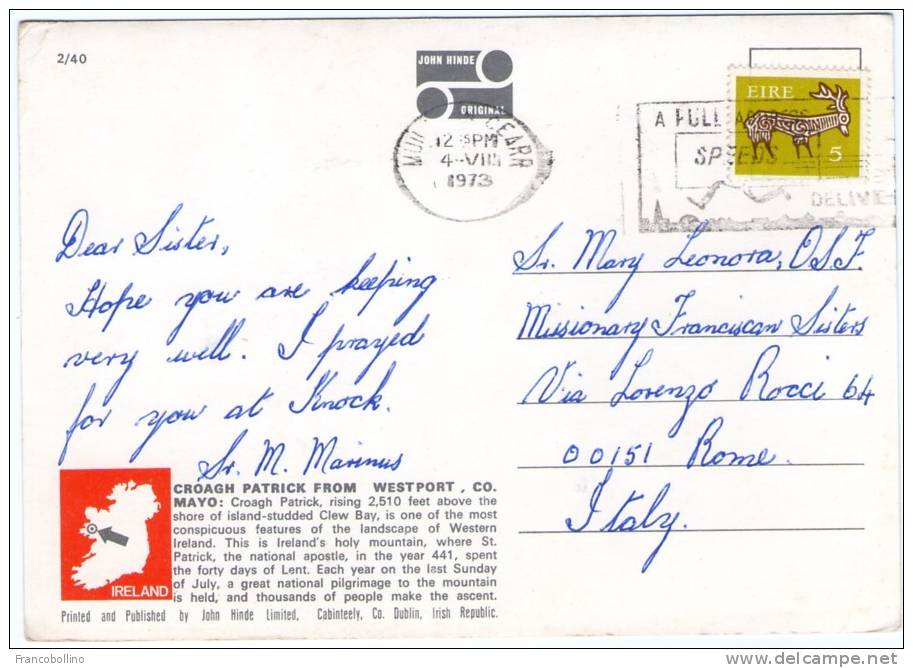 2/40
JOHN HINDE
ORIGINAL
EIRE
5
CEARR
12 PM
4-VIII
1973
A FULL
SPEEDS
DELIVE
Dear Sister,
Hope you are keeping
very well. I prayed
for you at Knock.
Sr. M. Marinus
Sr. Mary Leonora, O.S.F.
Missionary Franciscan Sisters
Via Lorenzo Rocci 64
00151 Rome.
Italy.
IRELAND
CROAGH PATRICK FROM WESTPORT, CO.
MAYO: Croagh Patrick, rising 2,510 feet above the
shore of island-studded Clew Bay, is one of the most
conspicuous features of the landscape of Western
Ireland. This is Ireland's holy mountain, where St.
Patrick, the national apostle, in the year 441, spent
the forty days of Lent. Each year on the last Sunday
of July, a great national pilgrimage to the mountain
is held, and thousands of people make the ascent.
Printed and Published by John Hinde Limited, Cabinteely, Co. Dublin, Irish Republic.
Francobollino
delcampe.net